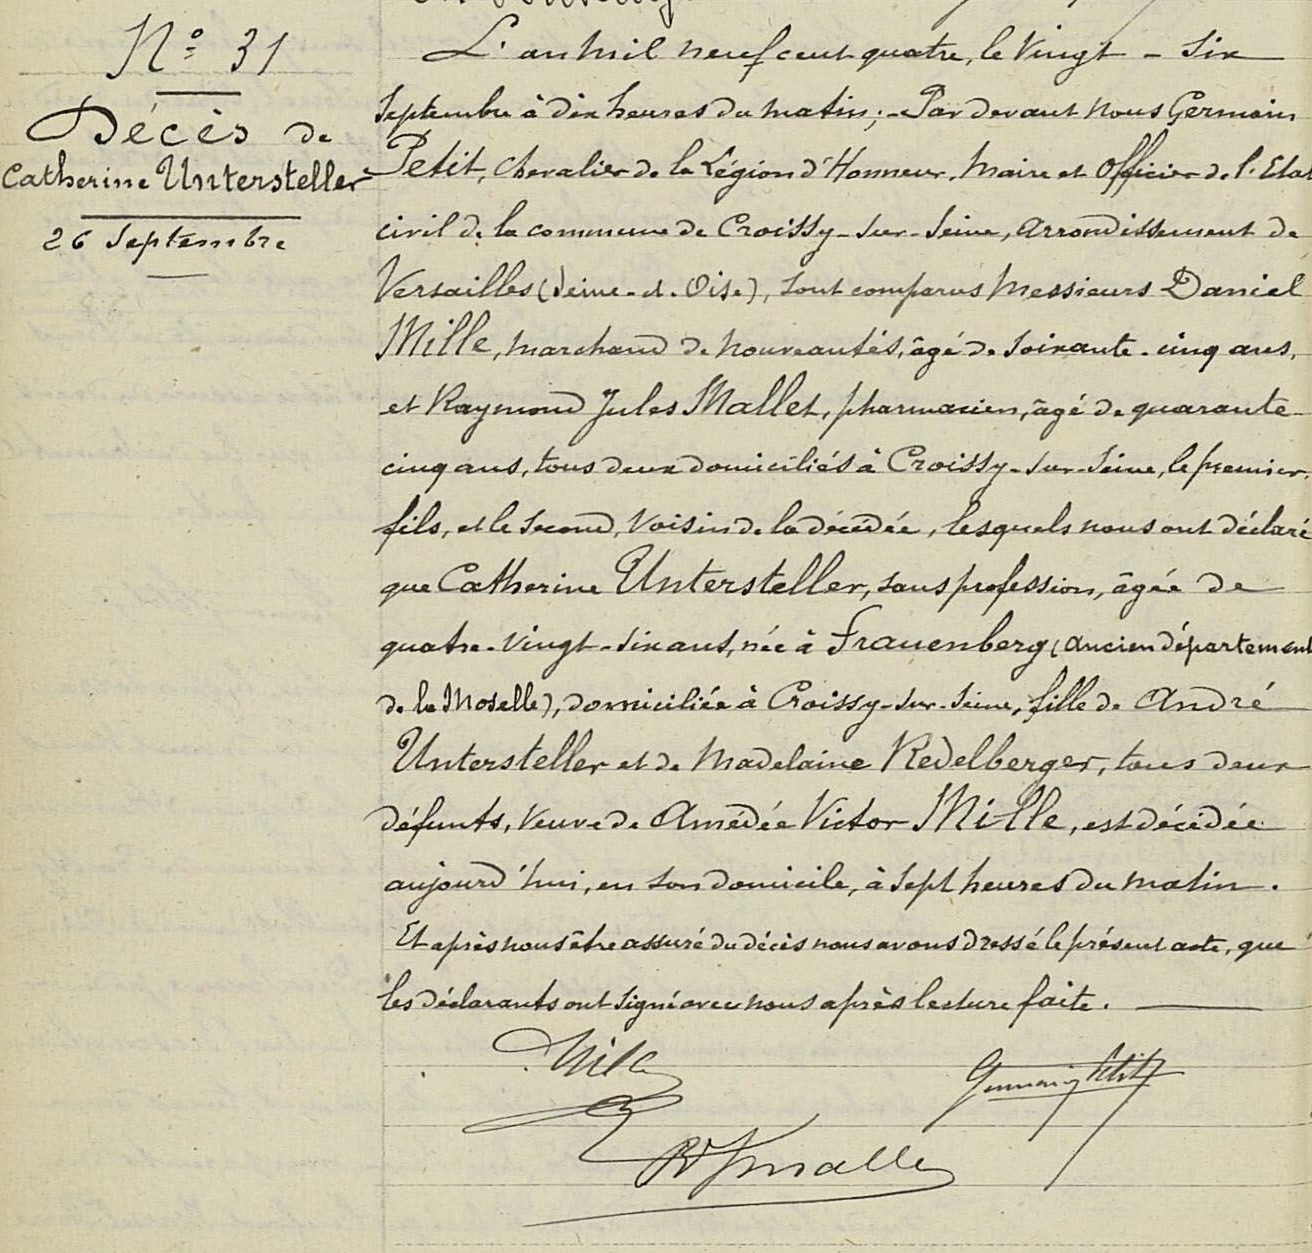 N° 31
Décès de
Catherine Untersteller
26 Septembre
L'an mil neuf cent quatre, le Vingt - Six
Septembre à dix heures du matin ; - Par devant nous Germain
Petit, Chevalier de la Légion d'Honneur, Maire et Officier de l'Etat
civil de la commune de Croissy-sur-Seine, arrondissement de
Versailles (Seine-et-Oise), sont comparus Messieurs Daniel
Mille, marchand de nouveautés, âgé de soixante-cinq ans,
et Raymond Jules Mallet, pharmacien, âgé de quarante-
cinq ans, tous deux domiciliés à Croissy-sur-Seine, le premier,
fils, et le second, voisin de la décédée, lesquels nous ont déclaré
que Catherine Untersteller, sans profession, âgée de
quatre-vingt-six ans, née à Frauenberg (ancien département
de la Moselle), domiciliée à Croissy-sur-Seine, fille de André
Untersteller et de Madelaine Redelberger, tous deux
défunts, veuve de Amédée Victor Mille, est décédée
aujourd'hui, en son domicile, à sept heures du matin.
Et après nous être assuré du décès nous avons dressé le présent acte, que
les déclarants ont signé avec nous après lecture faite.
Mille
Germain Petit